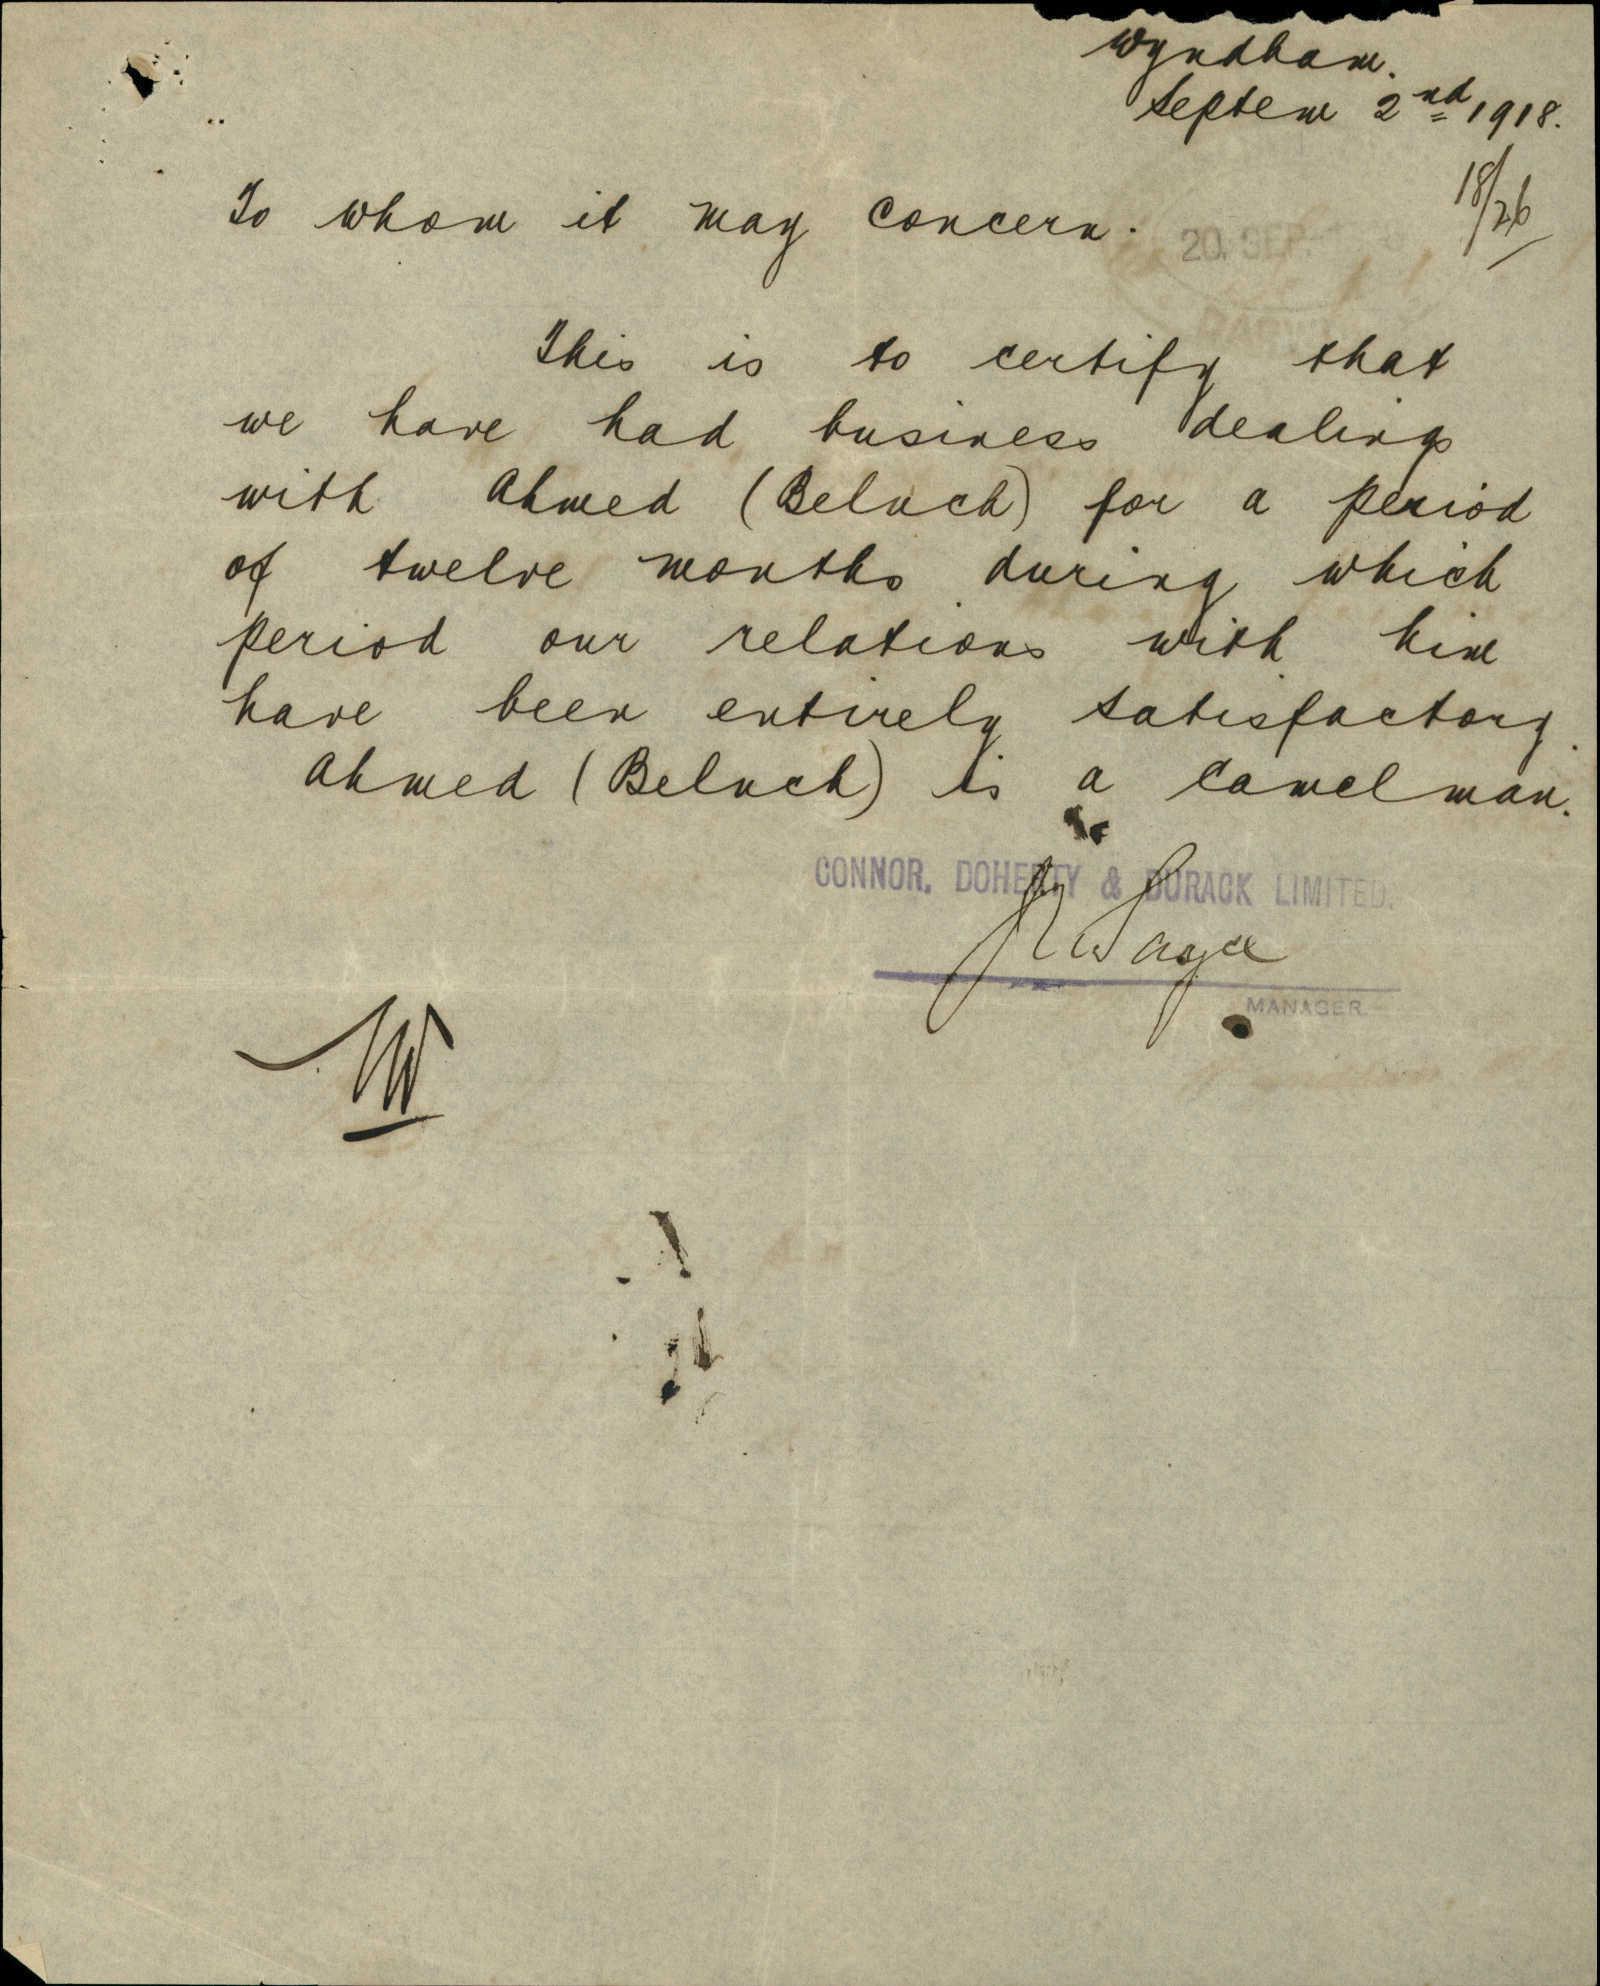 Wyndham.
Septem 2nd 1918.
18/26
To whom it may concern.
20. SEP.
This is to certify that
we have had business dealings
with Ahmed (Beluch) for a period
of twelve months during which
period our relations with him
have been entirely satisfactory.
Ahmed (Beluch) is a camel man.
CONNOR, DOHERTY & DURACK LIMITED.
MANAGER.